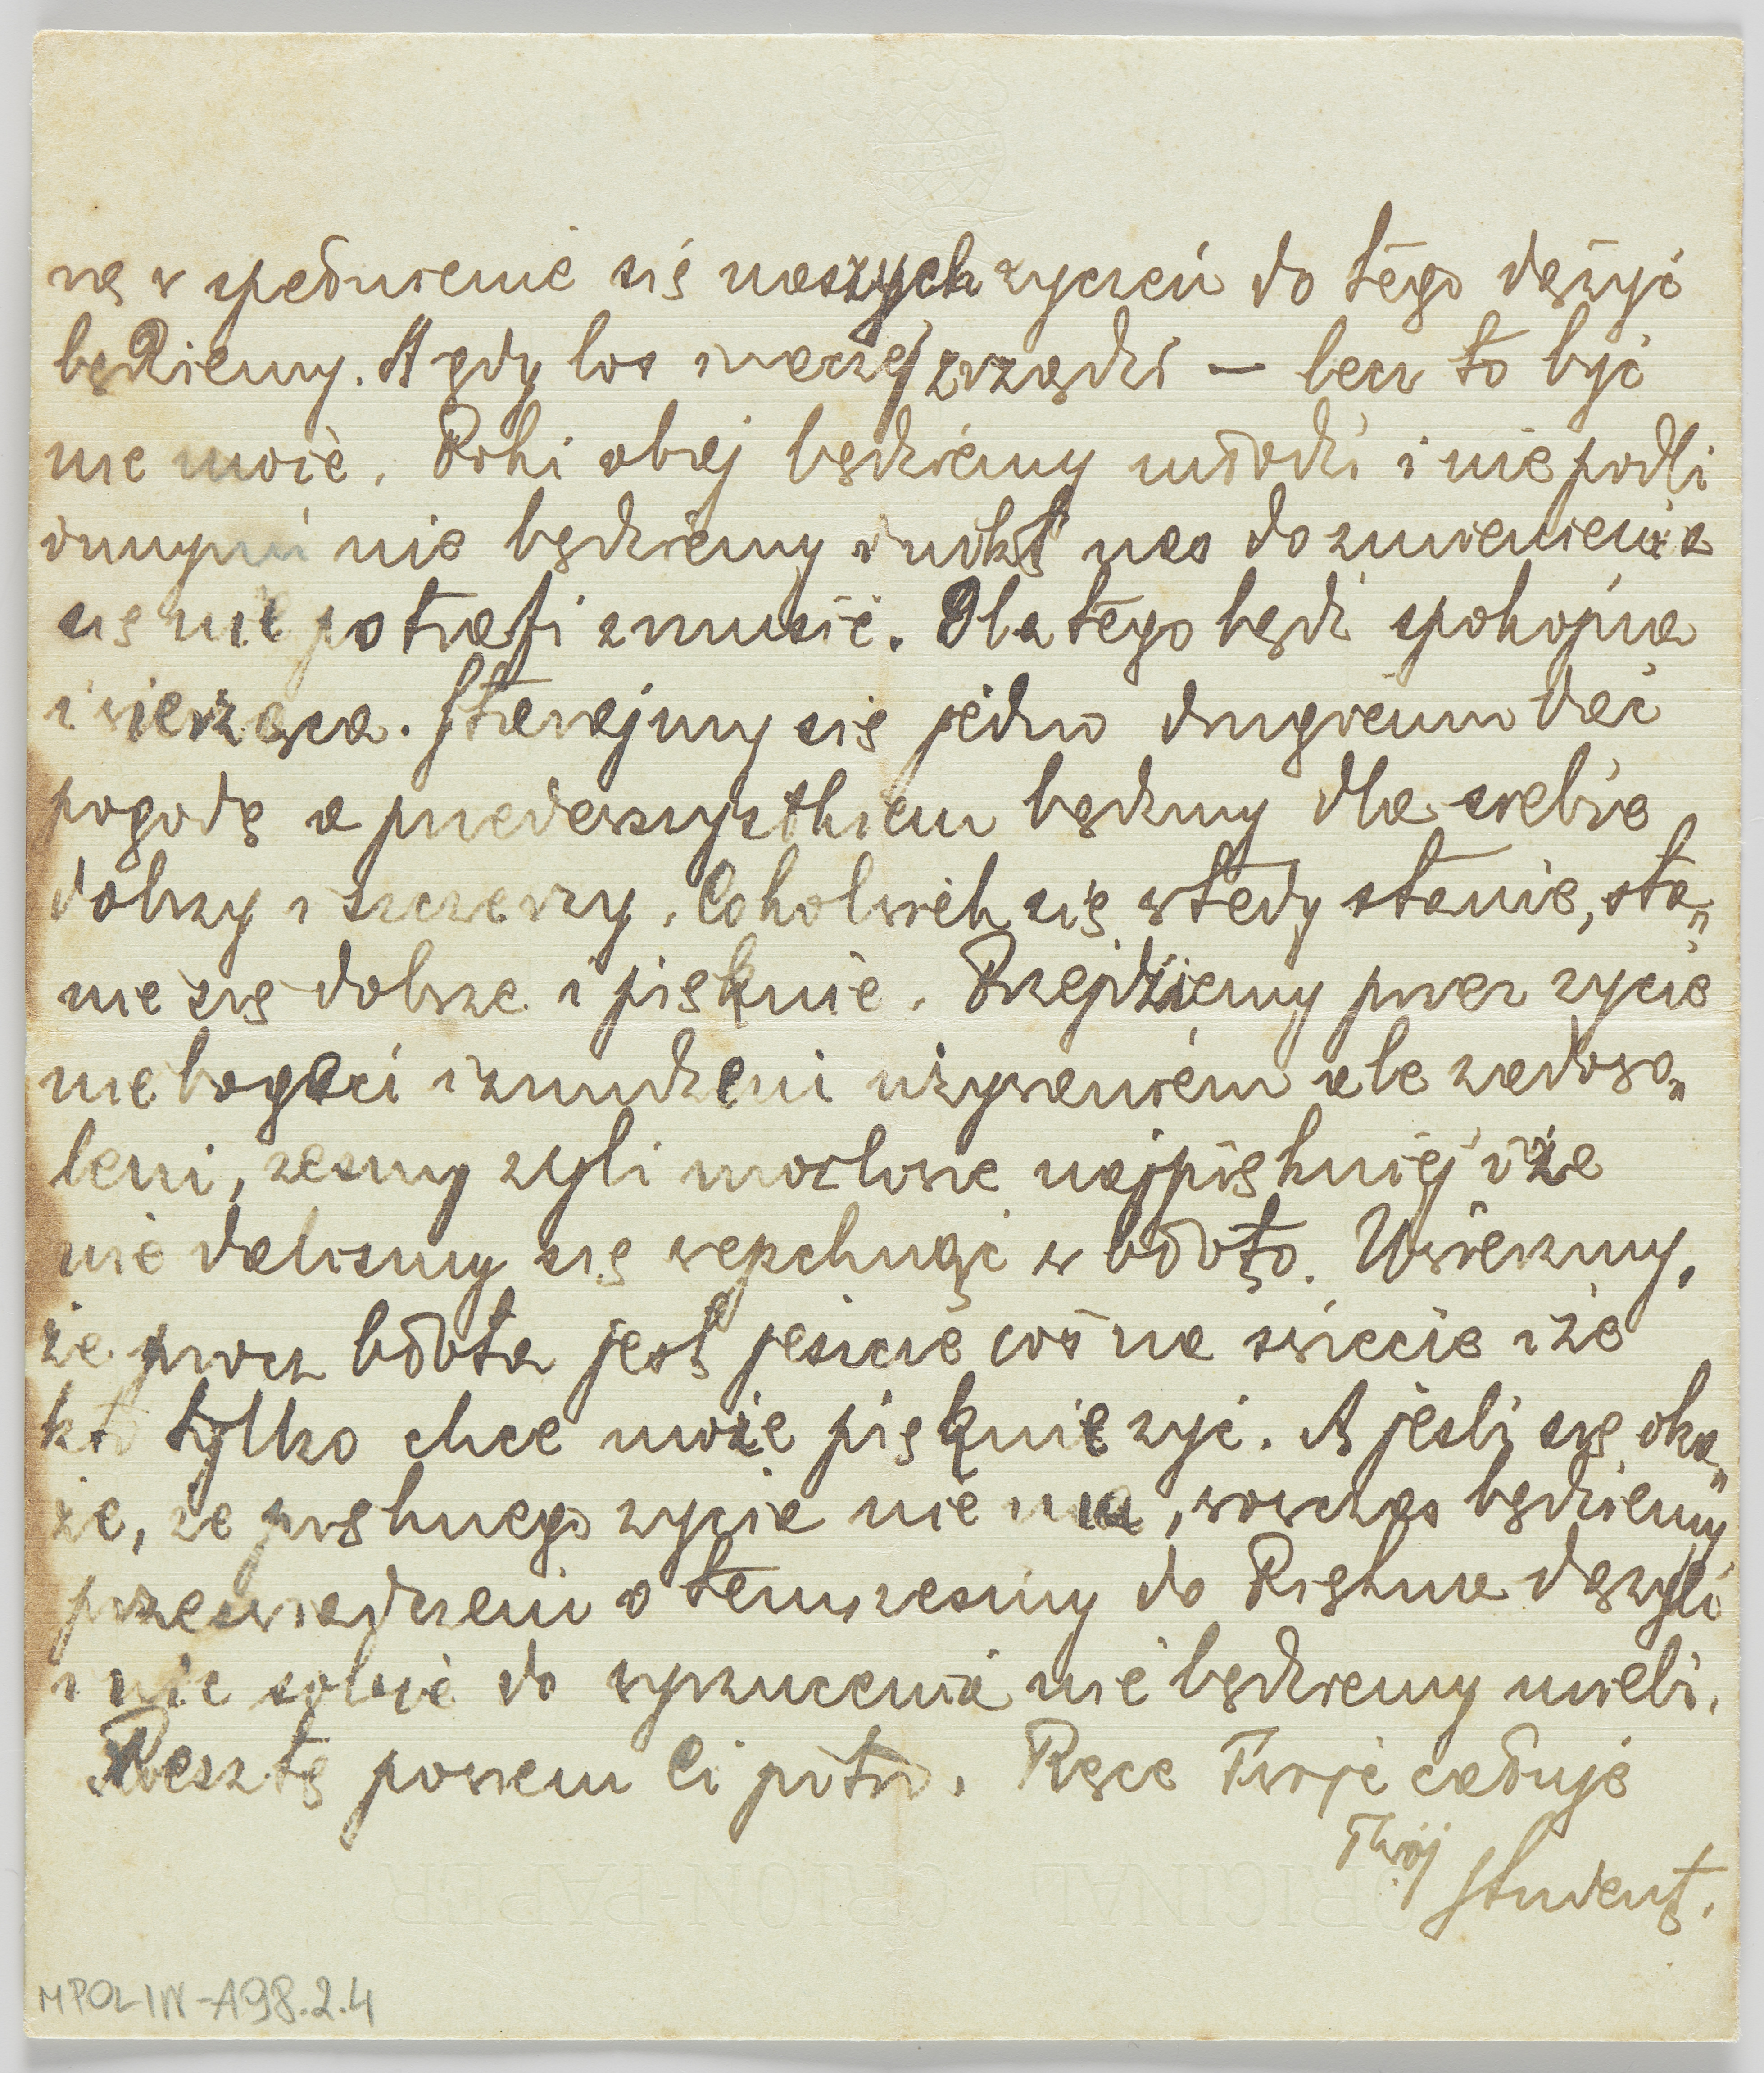 rę w spełnienie się naszych życzeń do tego dążyć
będziemy. A gdy los inaczej zrządzi — lecz to być
nie może. Póki obaj będziemy młodzi i nie podli
innymi nie będziemy i nikt nas do zmienienia
się nie potrafi zmusić. Dlatego bądź spokojna
i wierząca. Starajmy się jedno drugiemu dać
pogodę a przedewszystkiem bądźmy dla siebie
dobrzy i szczerzy. Cokolwiek się wtedy stanie, sta„
nie się dobrze i pięknie. Przejdziemy przez życie
nie bogaci i znudzeni używaniem ale zadowo„
leni, żeśmy żyli możliwie najpiękniej i że
nie daliśmy się wepchnąć w błoto. Uwierzmy,
że prócz błota jest jeszcze coś na świecie i że
kto tylko chce może pięknie żyć. A jeśli się oka„
że, że pięknego życia nie ma, wówczas będziemy
przeświadczeni o tem, żeśmy do Piękna dążyli
i nic sobie do wyrzucenia nie będziemy mieli.
Resztę powiem Ci potem. Ręce Twoje całuję
Twój
Student.
ORIGINAL CROWN-PAPER
MPOLIN-A98.2.4